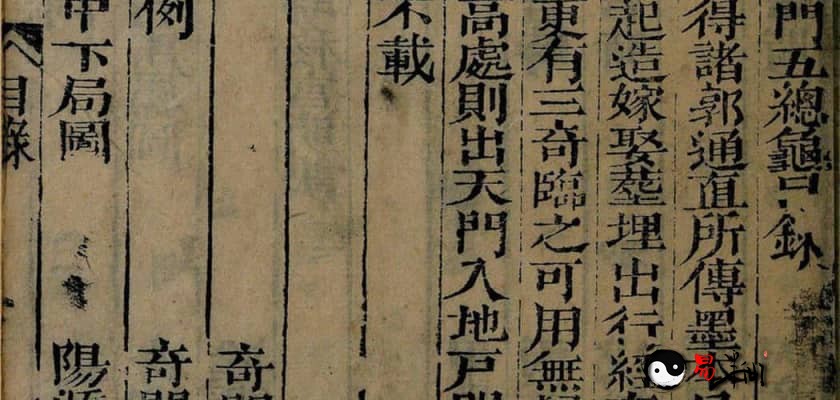 門五總龜目錄
得諸郭通直所傳墨
起造嫁娶塟埋出行經
更有三奇臨之可用無
高處則出天門入地戶
不載
奇
例 奇
中下局圖 陽
目錄
易